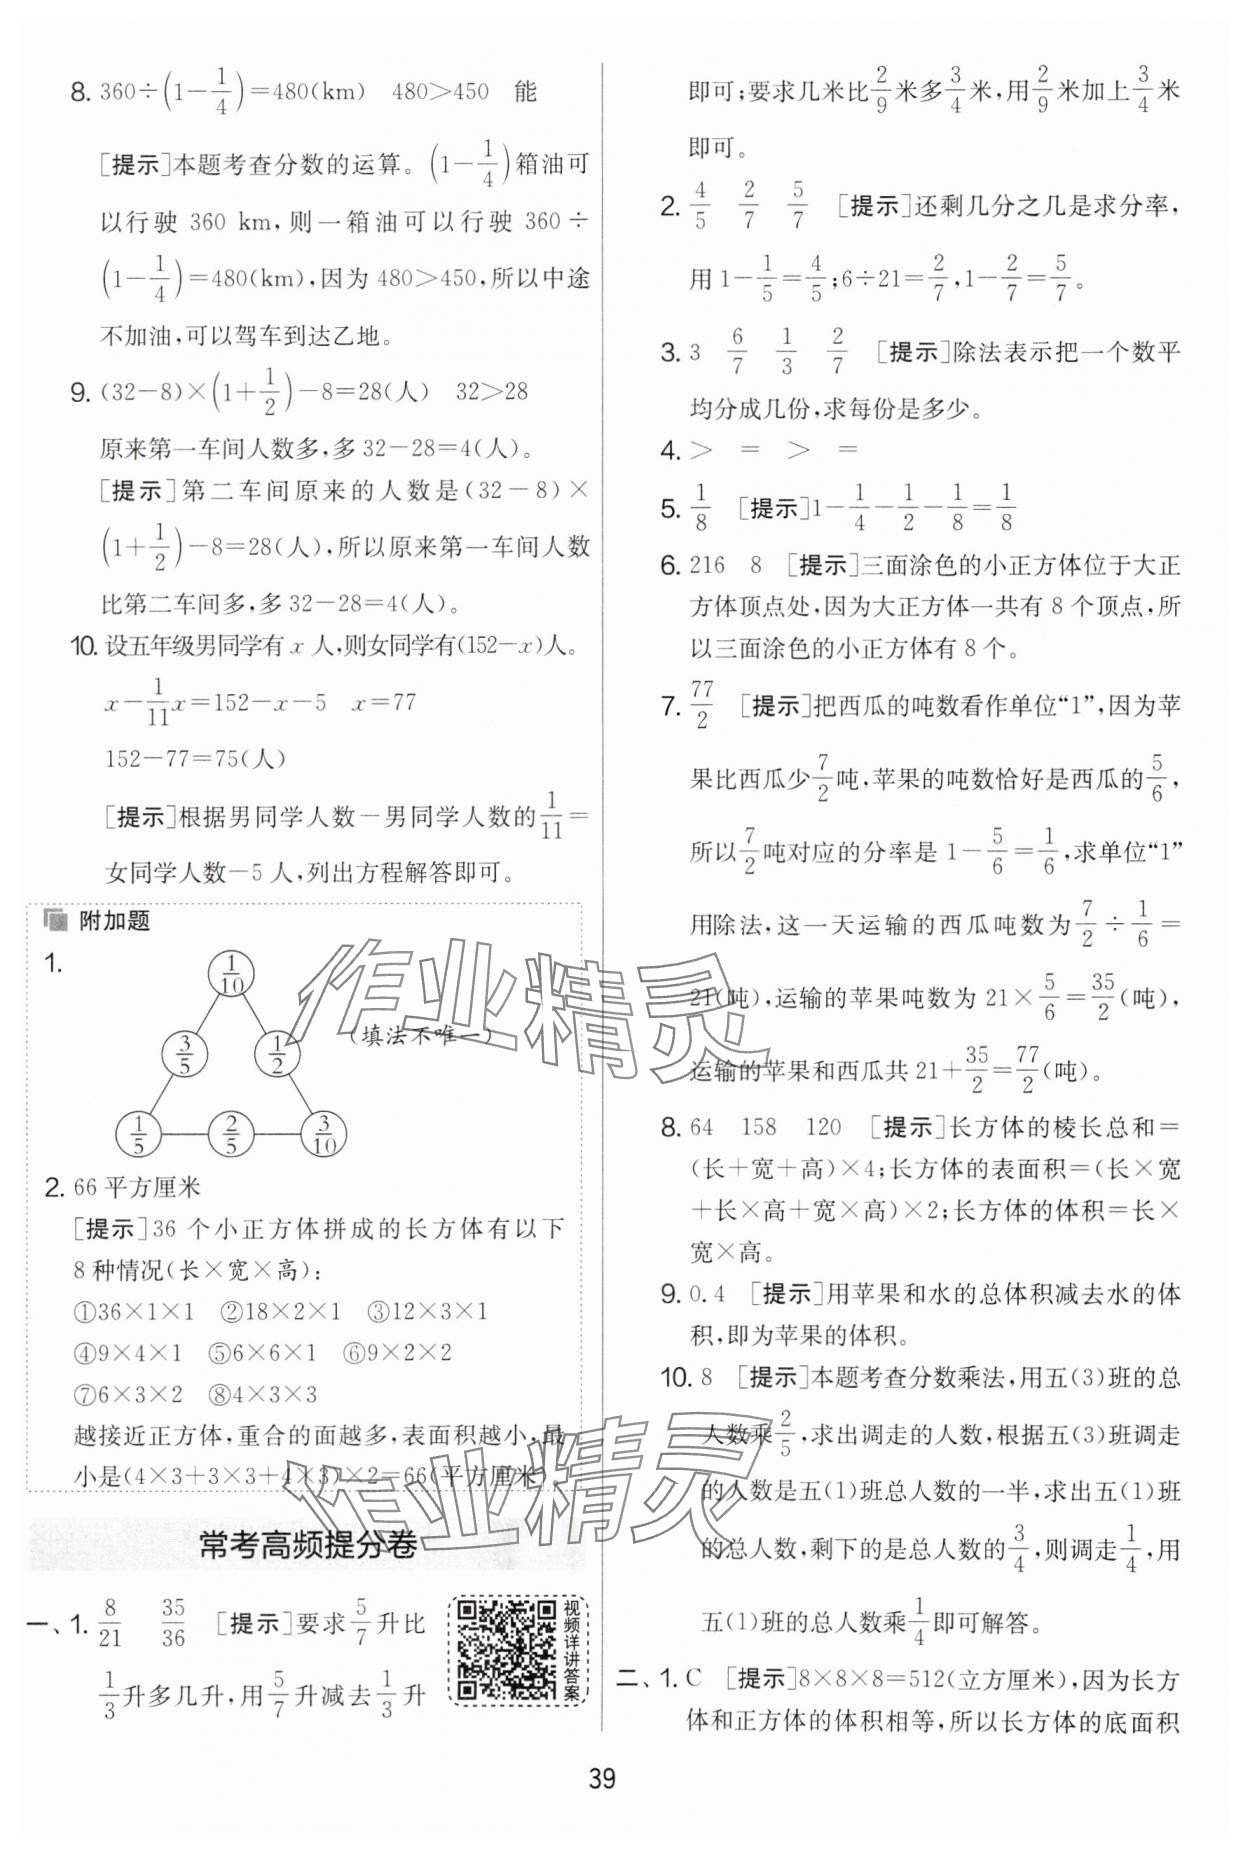 8. 360÷(1－1/4)＝480(km)　480＞450　能
［提示］本题考查分数的运算。(1－1/4)箱油可
以行驶 360 km，则一箱油可以行驶 360÷
(1－1/4)＝480(km)，因为 480＞450，所以中途
不加油，可以驾车到达乙地。
9. (32－8)×(1＋1/2)－8＝28(人)　32＞28
原来第一车间人数多，多 32－28＝4(人)。
［提示］第二车间原来的人数是(32－8)×
(1＋1/2)－8＝28(人)，所以原来第一车间人数
比第二车间多，多 32－28＝4(人)。
10. 设五年级男同学有 x 人，则女同学有(152－x)人。
x－1/11x＝152－x－5　x＝77
152－77＝75(人)
［提示］根据男同学人数－男同学人数的1/11＝
女同学人数－5 人，列出方程解答即可。
附加题
1.
1/10
3/5　1/2　(填法不唯一)
1/5　2/5　3/10
2. 66 平方厘米
［提示］36 个小正方体拼成的长方体有以下
8 种情况(长×宽×高)：
①36×1×1　②18×2×1　③12×3×1
④9×4×1　⑤6×6×1　⑥9×2×2
⑦6×3×2　⑧4×3×3
越接近正方体，重合的面越多，表面积越小，最
小是(4×3＋3×3＋4×3)×2＝66(平方厘米)
常考高频提分卷
一、1. 8/21　35/36　［提示］要求5/7升比
1/3升多几升，用5/7升减去1/3升
视频详讲答案
即可；要求几米比2/9米多3/4米，用2/9米加上3/4米
即可。
2. 4/5　2/7　5/7　［提示］还剩几分之几是求分率，
用 1－1/5＝4/5；6÷21＝2/7，1－2/7＝5/7。
3. 3　6/7　1/3　2/7　［提示］除法表示把一个数平
均分成几份，求每份是多少。
4. ＞　＝　＞　＝
5. 1/8　［提示］1－1/4－1/2－1/8＝1/8
6. 216　8　［提示］三面涂色的小正方体位于大正
方体顶点处，因为大正方体一共有 8 个顶点，所
以三面涂色的小正方体有 8 个。
7. 77/2　［提示］把西瓜的吨数看作单位“1”，因为苹
果比西瓜少7/2吨，苹果的吨数恰好是西瓜的5/6，
所以7/2吨对应的分率是 1－5/6＝1/6，求单位“1”
用除法，这一天运输的西瓜吨数为7/2÷1/6＝
21(吨)，运输的苹果吨数为 21×5/6＝35/2(吨)，
运输的苹果和西瓜共 21＋35/2＝77/2(吨)。
8. 64　158　120　［提示］长方体的棱长总和＝
(长＋宽＋高)×4；长方体的表面积＝(长×宽
＋长×高＋宽×高)×2；长方体的体积＝长×
宽×高。
9. 0.4　［提示］用苹果和水的总体积减去水的体
积，即为苹果的体积。
10. 8　［提示］本题考查分数乘法，用五(3)班的总
人数乘2/5，求出调走的人数，根据五(3)班调走
的人数是五(1)班总人数的一半，求出五(1)班
的总人数，剩下的是总人数的3/4，则调走1/4，用
五(1)班的总人数乘1/4即可解答。
二、1. C　［提示］8×8×8＝512(立方厘米)，因为长方
体和正方体的体积相等，所以长方体的底面积
39
作业精灵
作业精灵